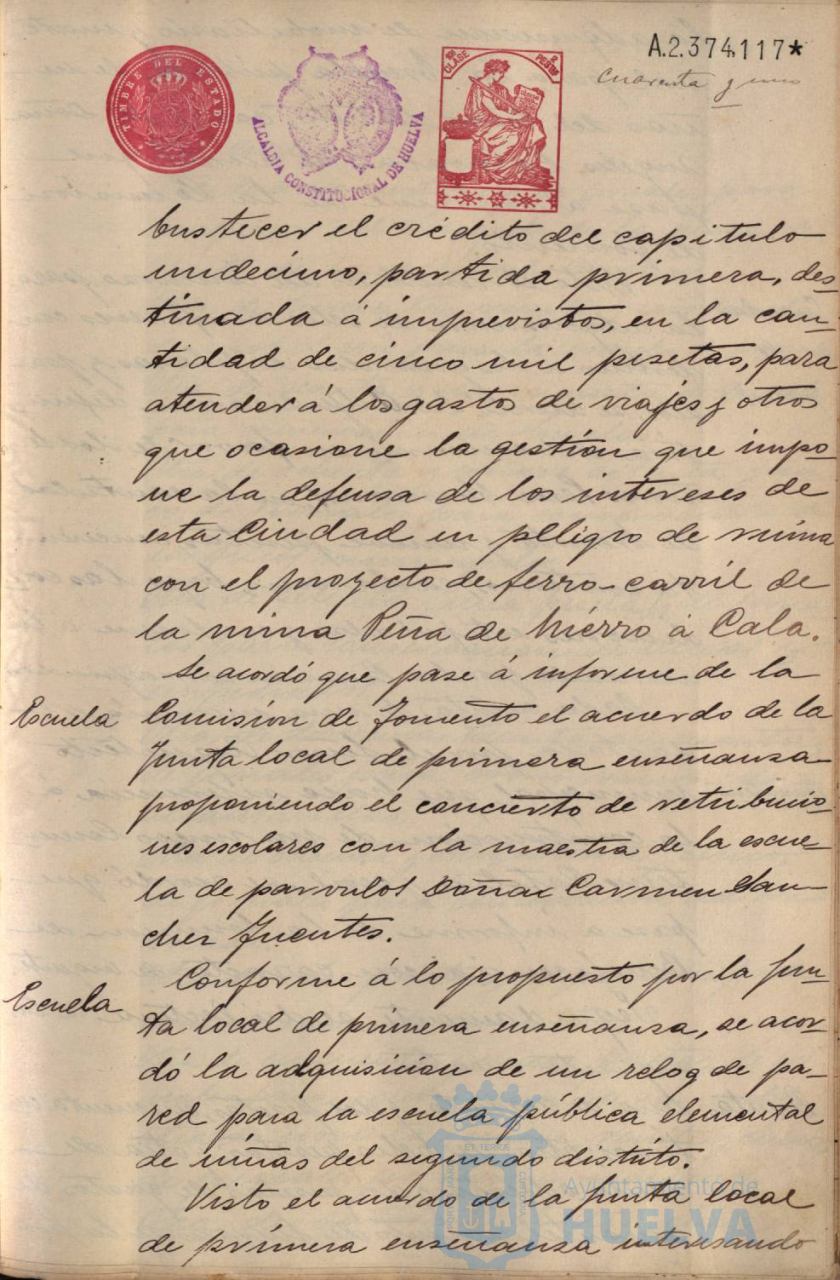 A.2.374.117*
cuarenta y uno
TIMBRE DEL ESTADO
ALCALDIA CONSTITUCIONAL DE HUELVA
CLASE
bustecer el crédito del capitulo
undecimo, partida primera, des-
tinada á imprevistos, en la can-
tidad de cinco mil pesetas, para
atender á los gastos de viajes y otros
que ocasione la gestión que impo-
ne la defensa de los intereses de
esta Ciudad en peligro de ruina
con el proyecto de ferro-carril de
la mina Peña de hierro á Cala.
Se acordó que pase á informe de la
Escuela
Comision de Fomento el acuerdo de la
Junta local de primera enseñansa
proponiendo el concierto de retribucio-
nes escolares con la maestra de la escue-
la de parvulos Doña Carmen San-
chez Fuentes.
Conforme á lo propuesto por la Jun-
Escuela
ta local de primera enseñansa, se acor-
dó la adquisicion de un relog de pa-
red para la escuela pública elemental
de niñas del segundo distrito.
Visto el acuerdo de la junta local
de primera enseñansa interesando
Ayuntamiento de
HUELVA